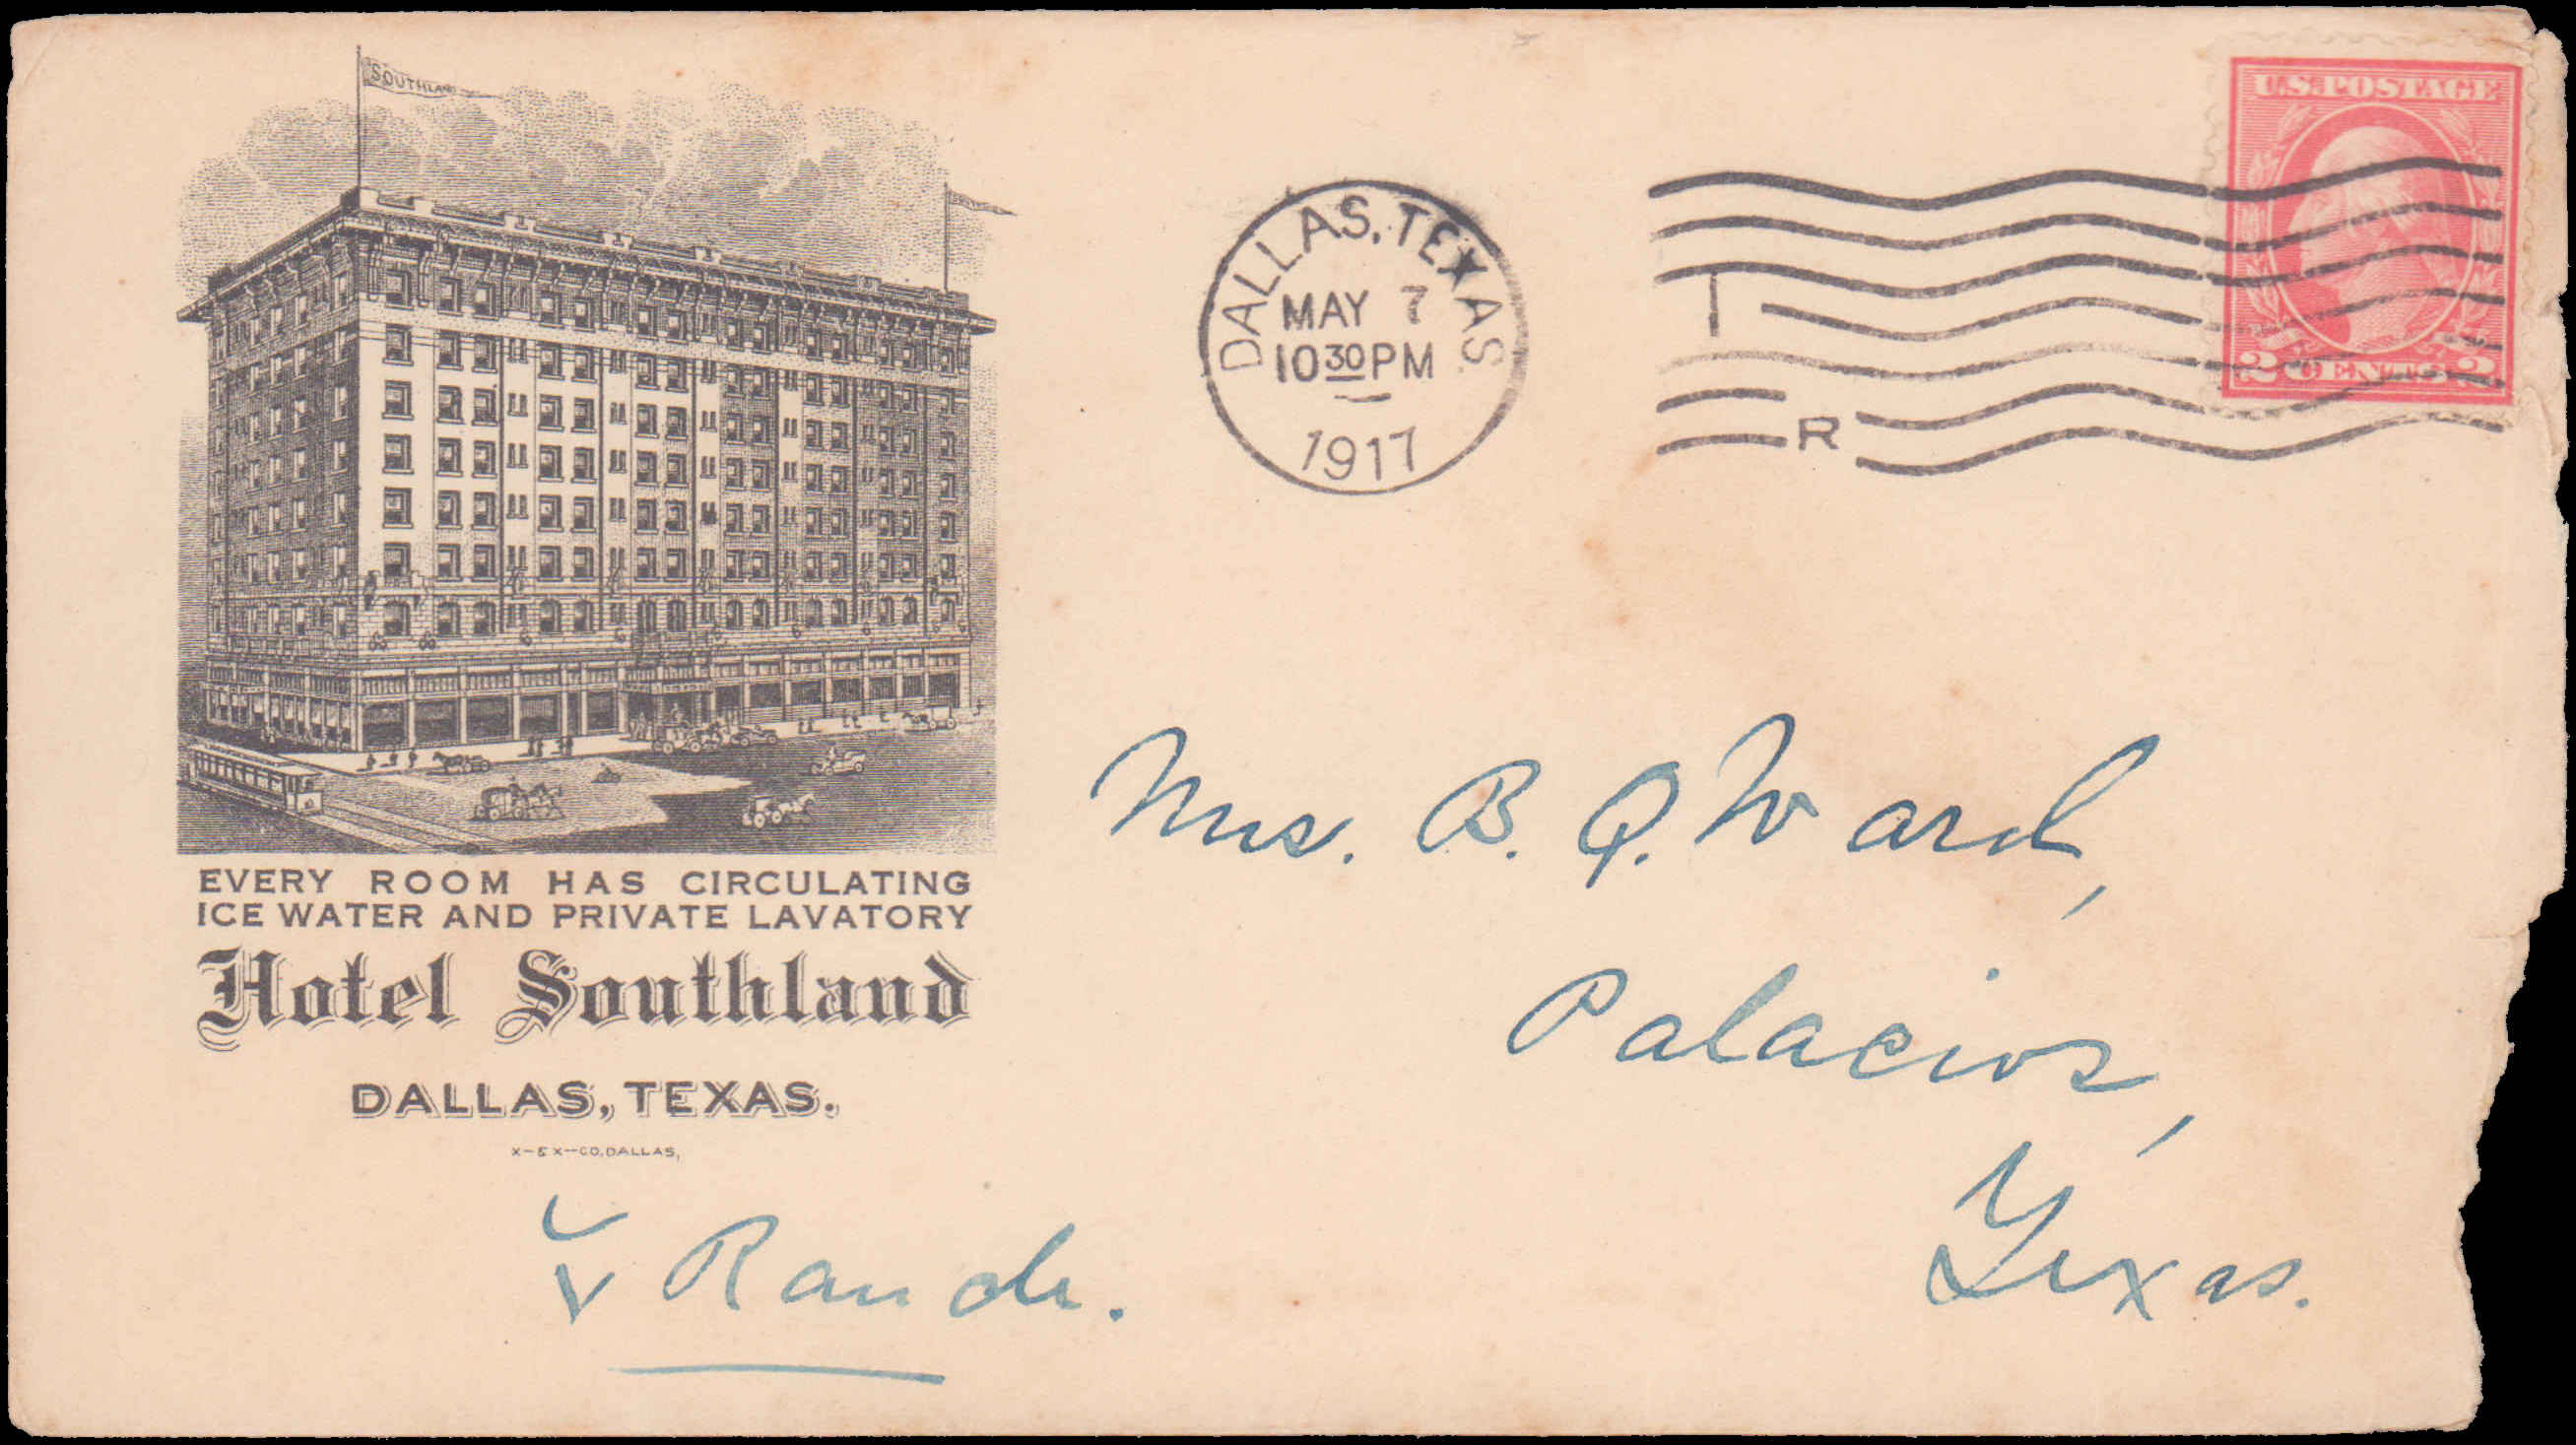 SOUTHLAND
U.S. POSTAGE
2 CENTS 2
DALLAS, TEXAS.
MAY 7
10 30 PM
1917
T
R
EVERY ROOM HAS CIRCULATING
ICE WATER AND PRIVATE LAVATORY
Hotel Southland
DALLAS, TEXAS.
X-EX-CO. DALLAS,
Mrs. B. Q. Ward,
Palacios,
Texas.
Ranch.